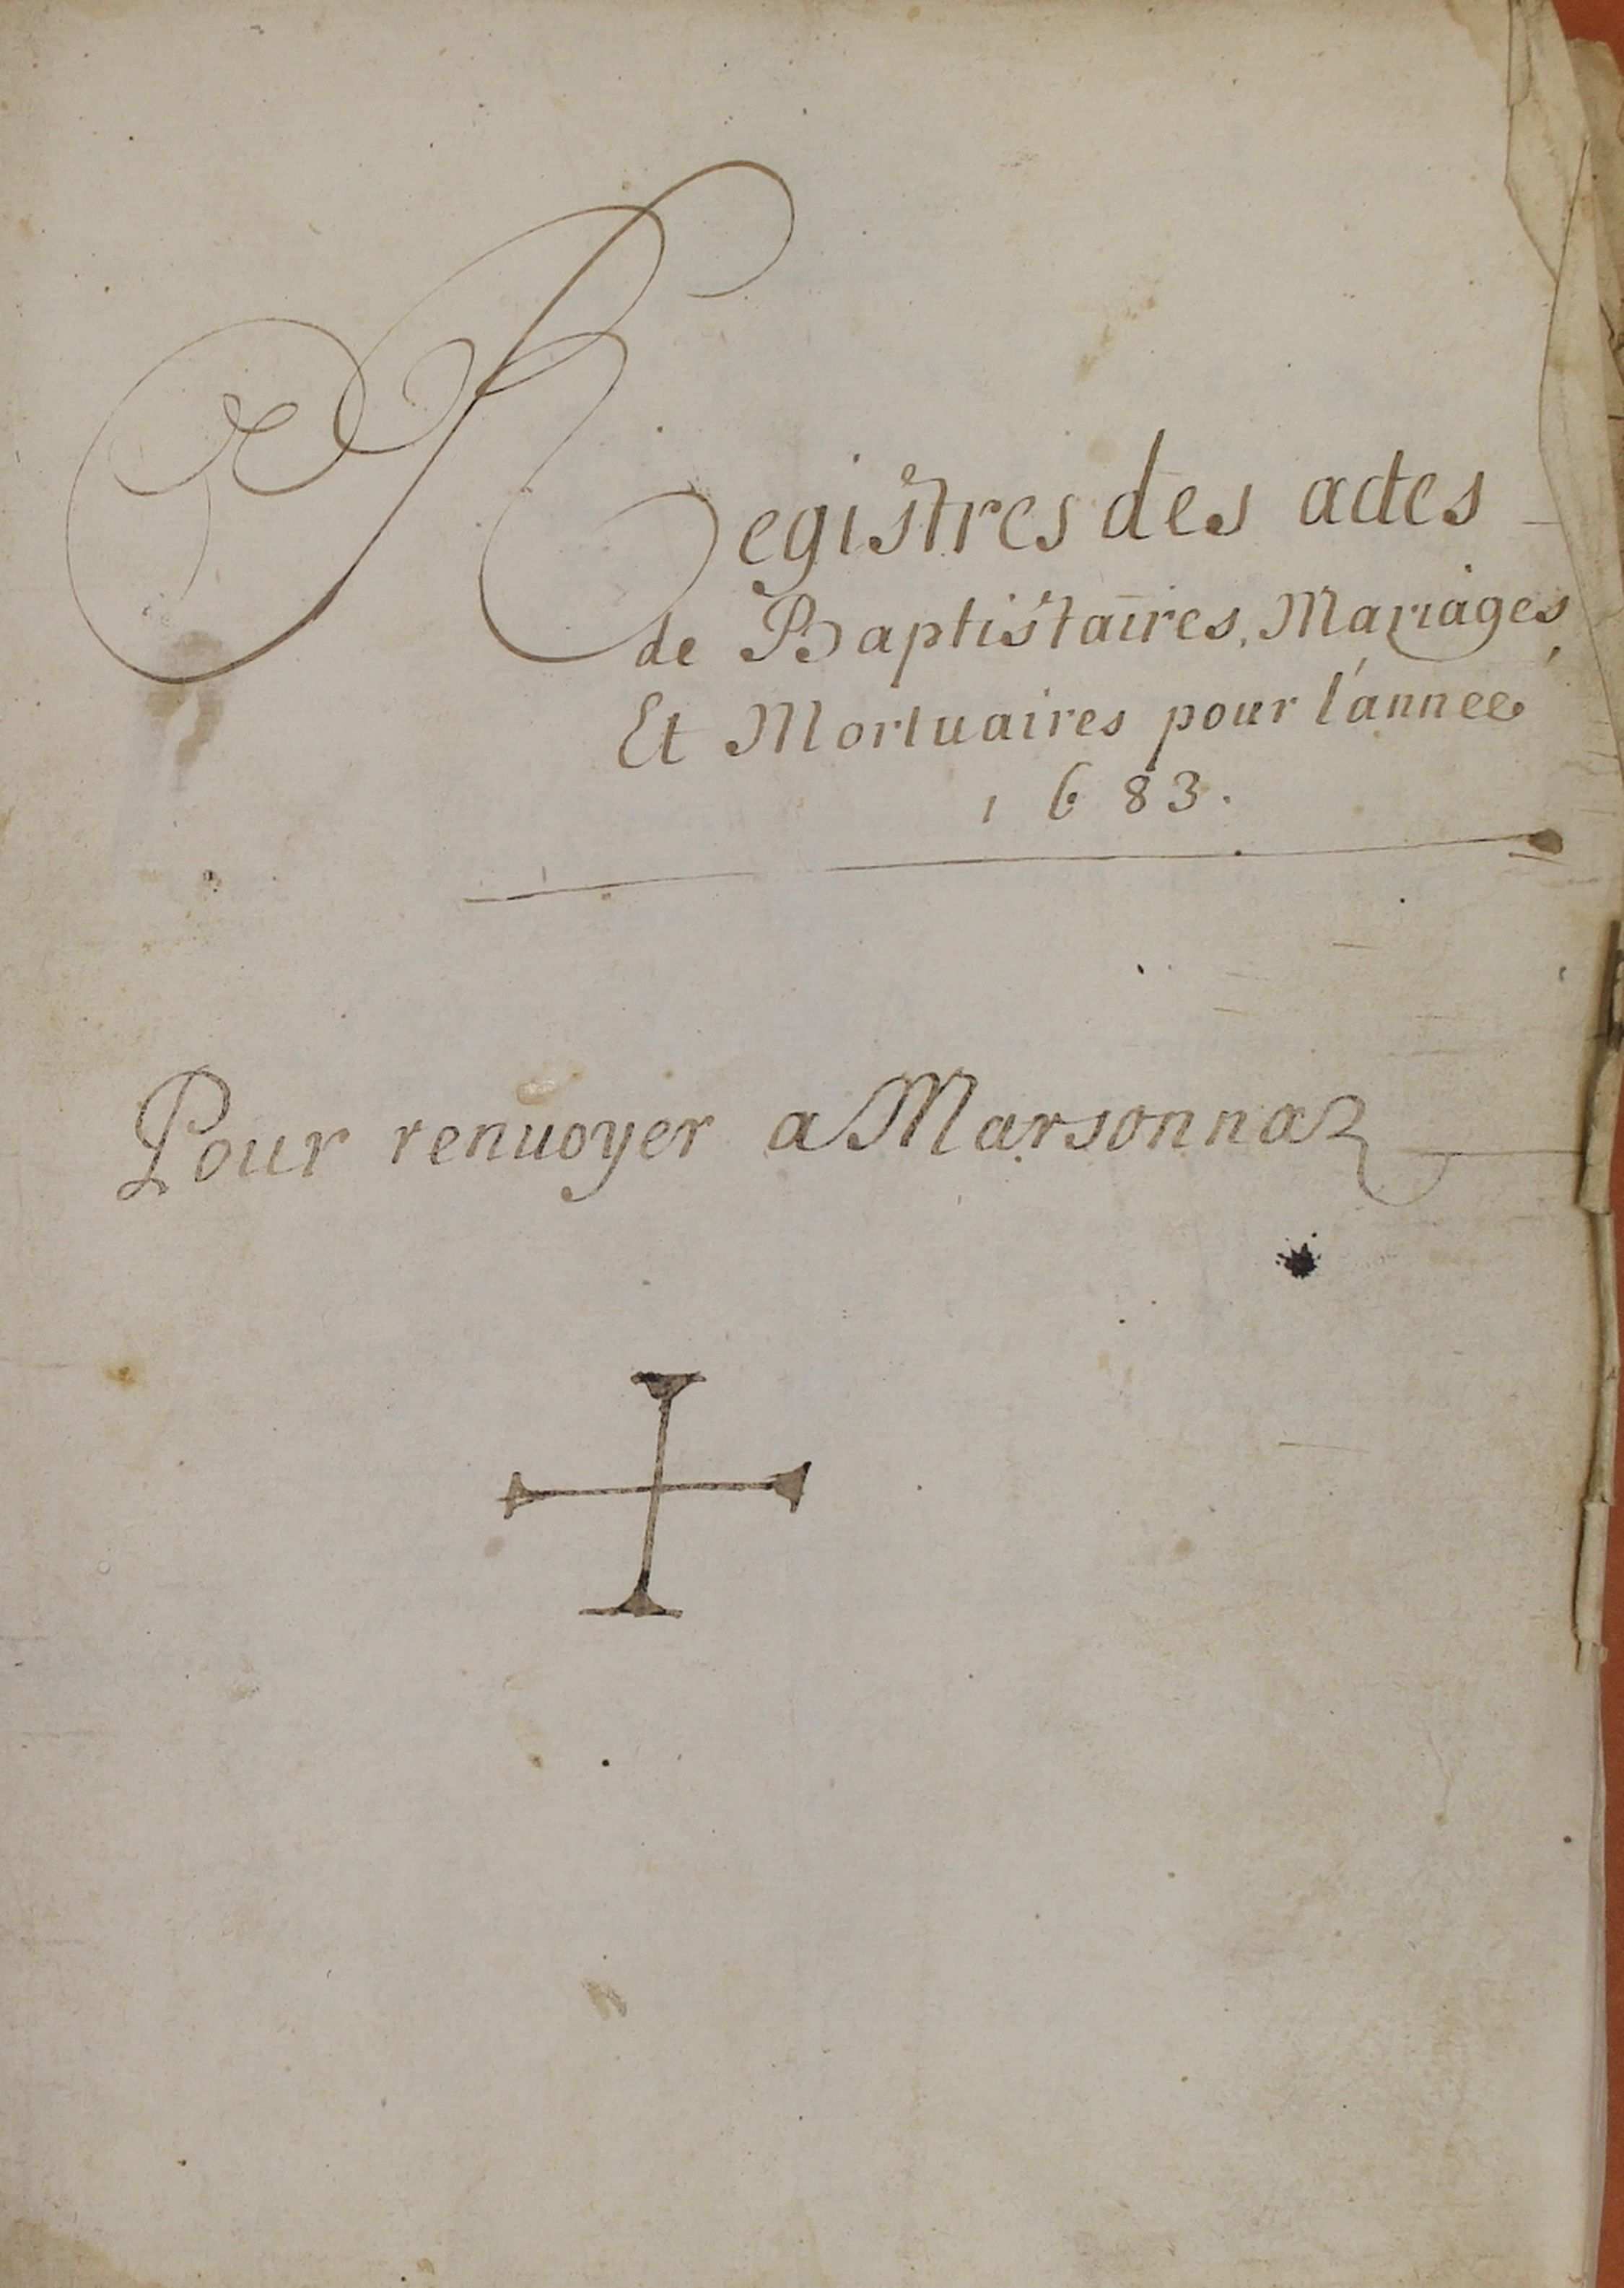 Registres des actes
de Baptistaires, Mariages,
Et Mortuaires pour l'année
1683.
Pour renuoyer a Marsonnaz